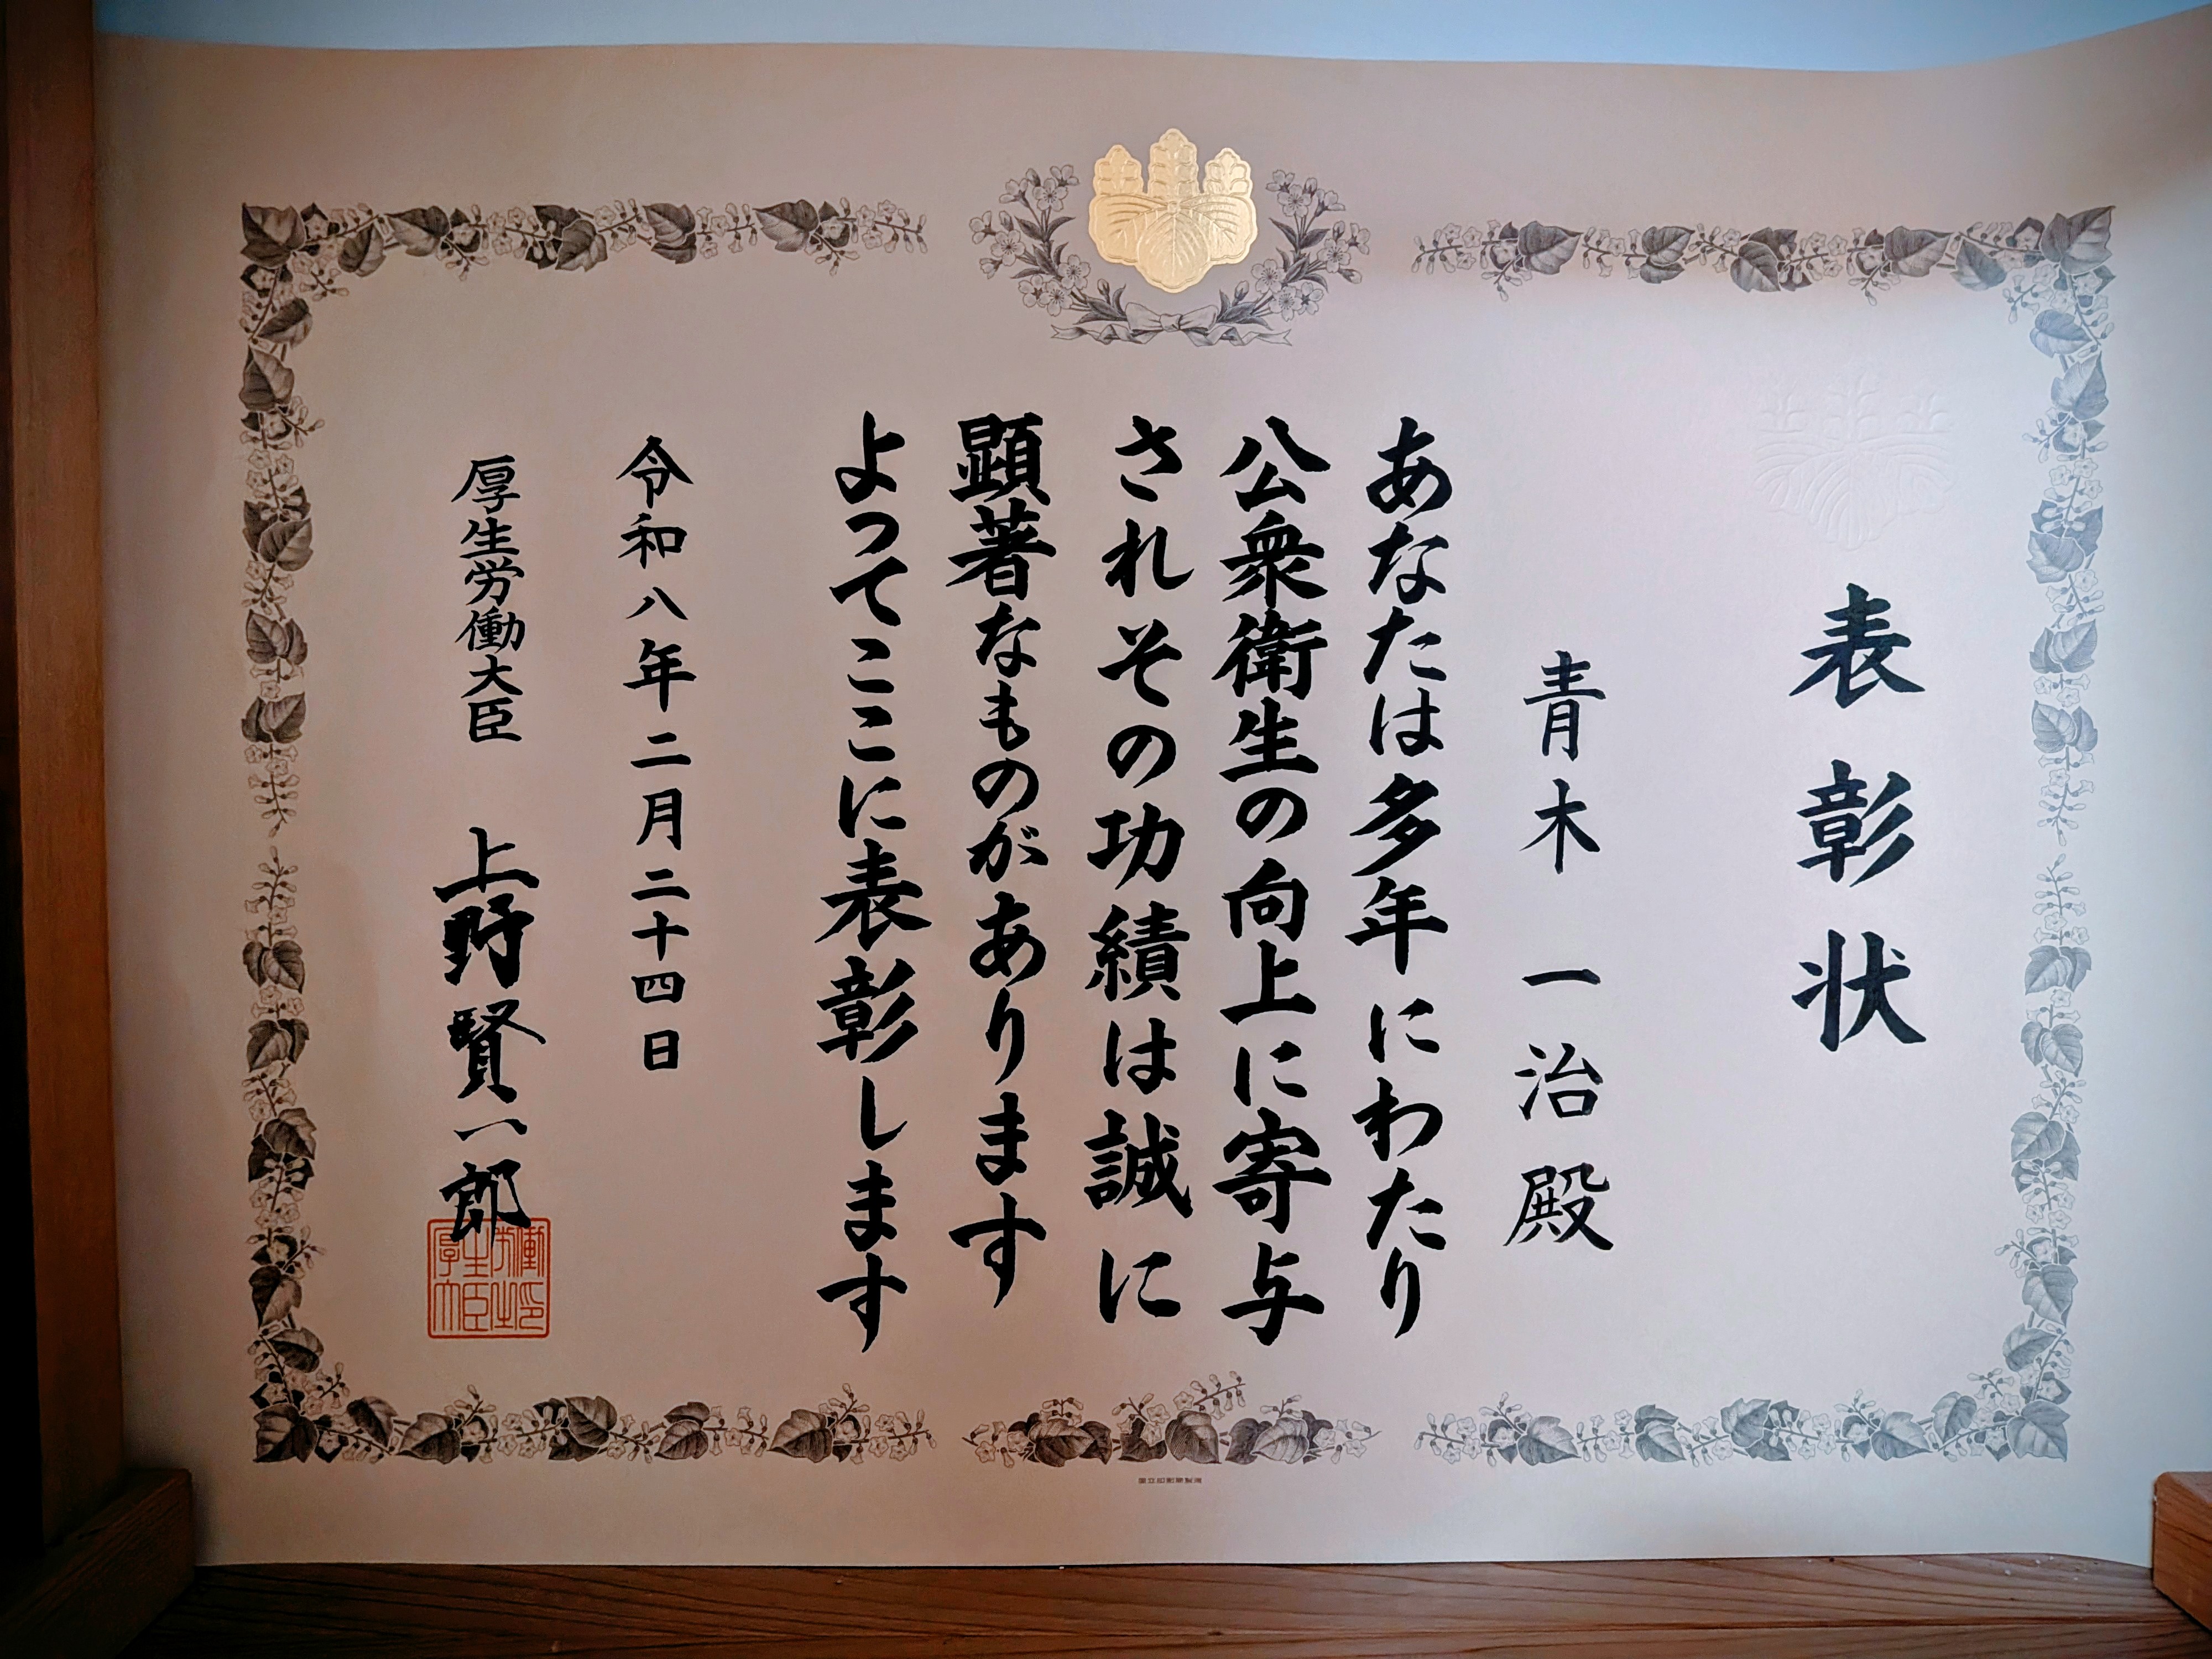 表彰状
青木一治殿
あなたは多年にわたり
公衆衛生の向上に寄与
されその功績は誠に
顕著なものがあります
よってここに表彰します
令和八年二月二十四日
厚生労働大臣 上野賢一郎